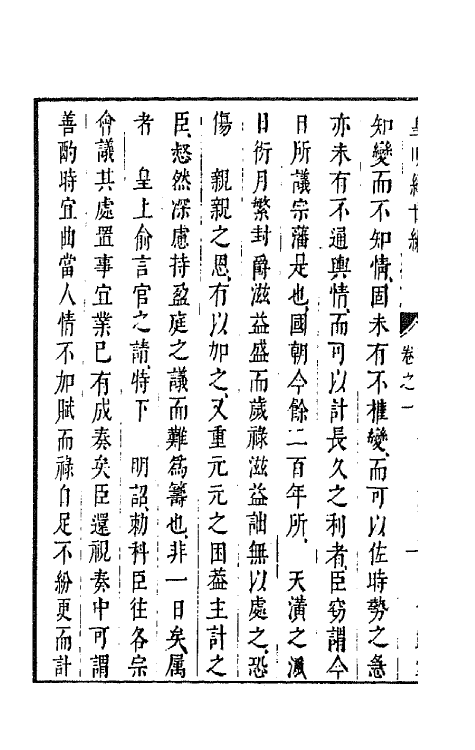 皇明經世編 卷之一
知變而不知情固未有不權變而可以佐時勢之急
亦未有不通輿情而可以計長久之利者臣竊謂今
日所議宗藩是也國朝今餘二百年所 天潢之派
日衍月繁封爵滋益盛而歲祿滋益詘無以處之恐
傷 親親之恩有以加之又重元元之困葢主計之
臣愁然深慮持盈庭之議而難爲籌也非一日矣属
者 皇上俞言官之請特下 明詔勅科臣往各宗
會議其處置事宜業已有成奏矣臣還視奏中可謂
善酌時宜曲當人情不加賦而祿自足不紛更而計